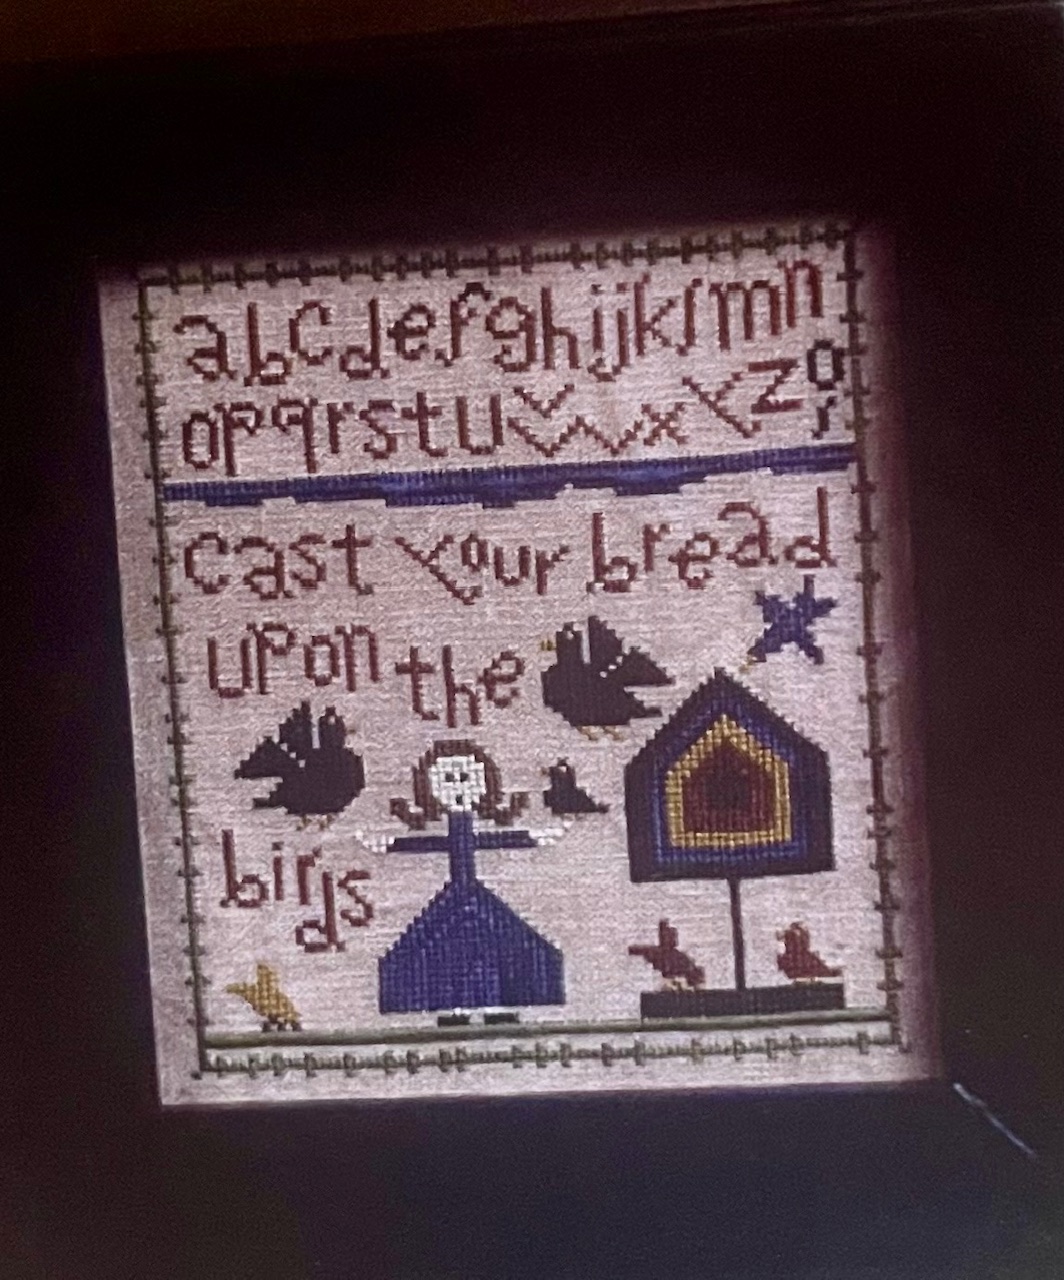 abcdefghijklmn
opqrstuvwxyz
cast your bread
upon the
birds